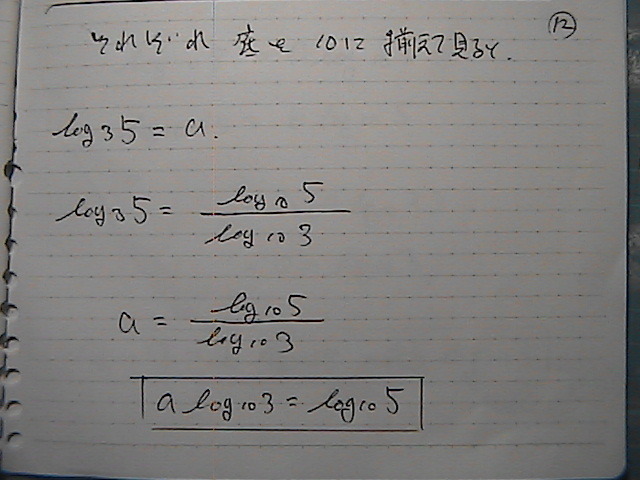 ⑫
それぞれ 底を 10に 揃えて見ると.
log₃5 = a.
log₃5 = log₁₀5 / log₁₀3
a = log₁₀5 / log₁₀3
a log₁₀3 = log₁₀5